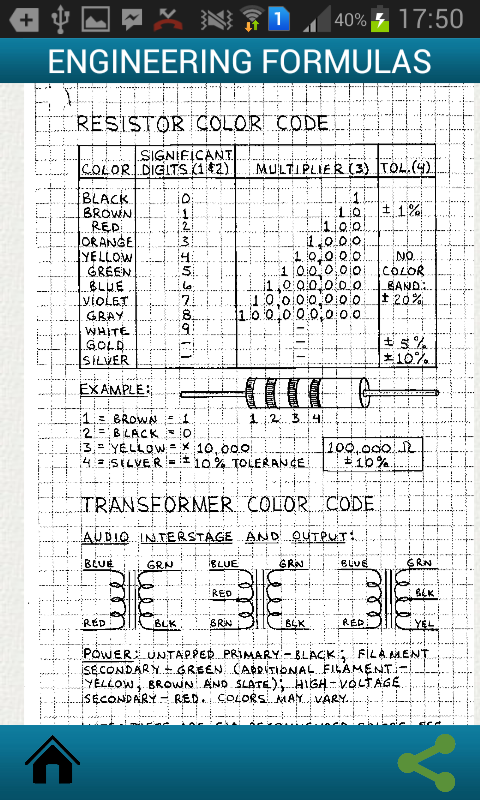 1 40% 17:50
ENGINEERING FORMULAS
RESISTOR COLOR CODE
COLOR SIGNIFICANT DIGITS (1&2) MULTIPLIER (3) TOL. (4)
BLACK 0 1
BROWN 1 10 ± 1%
RED 2 100
ORANGE 3 1,000
YELLOW 4 10,000 NO
GREEN 5 100,000 COLOR
BLUE 6 1,000,000 BAND:
VIOLET 7 10,000,000 ± 20%
GRAY 8 100,000,000
WHITE 9 –
GOLD – – ± 5%
SILVER – – ± 10%
EXAMPLE:
1 2 3 4
1 = BROWN = 1
2 = BLACK = 0
3 = YELLOW = × 10,000
4 = SILVER = ± 10% TOLERANCE
100,000 Ω
± 10%
TRANSFORMER COLOR CODE
AUDIO INTERSTAGE AND OUTPUT:
BLUE GRN BLUE GRN BLUE GRN
RED BLK
RED BLK BRN BLK RED YEL
POWER: UNTAPPED PRIMARY – BLACK; FILAMENT
SECONDARY – GREEN (ADDITIONAL FILAMENT –
YELLOW, BROWN AND SLATE); HIGH-VOLTAGE
SECONDARY – RED. COLORS MAY VARY.